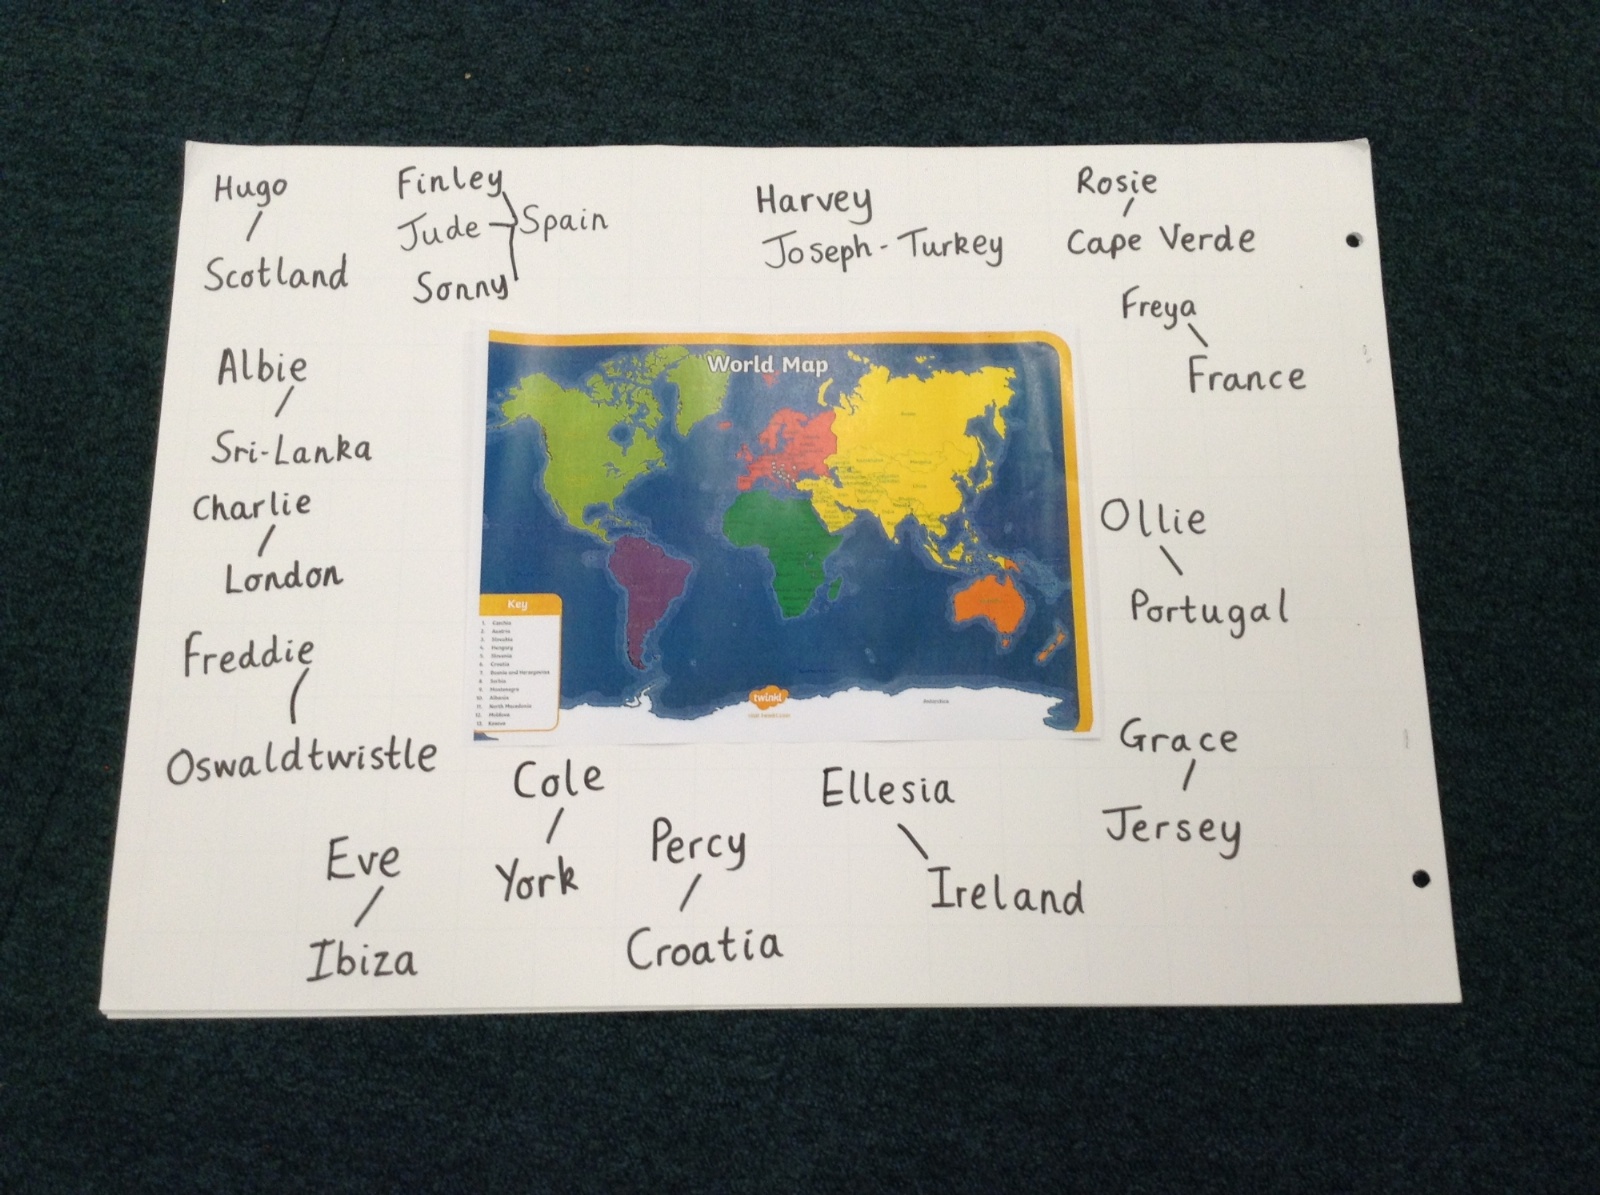 Hugo
Scotland
Finley
Jude - Spain
Sonny
Harvey
Joseph - Turkey
Rosie
Cape Verde
Freya
France
Albie
Sri-Lanka
Charlie
London
Freddie
Oswaldtwistle
World Map
Key
1. Czechia
2. Austria
3. Slovakia
4. Hungary
5. Slovenia
6. Croatia
7. Bosnia and Herzegovina
8. Serbia
9. Montenegro
10. Albania
11. North Macedonia
12. Moldova
13. Kosovo
twinkl
Antarctica
Ollie
Portugal
Grace
Jersey
Cole
York
Eve
Ibiza
Percy
Croatia
Ellesia
Ireland